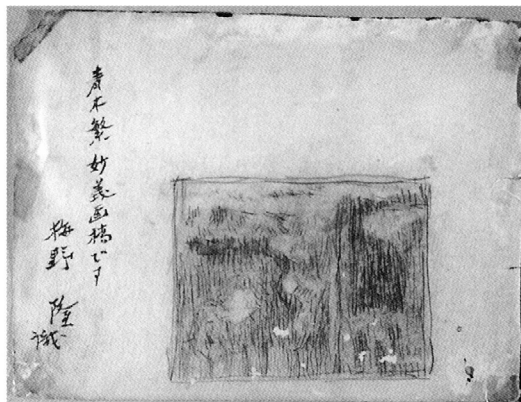 青木繁 妙義画稿です
梅野 隆 識